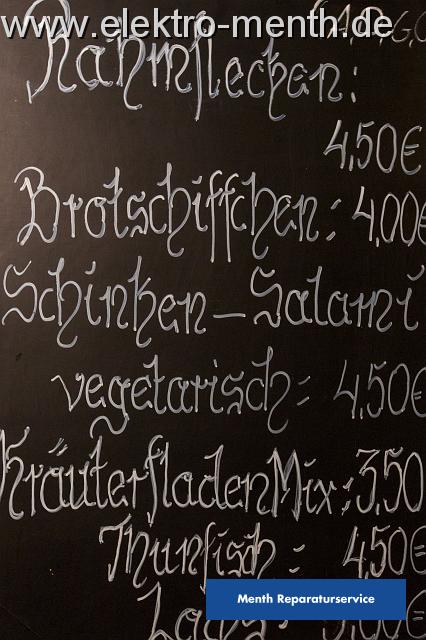 www.elektro-menth.de
Rahmflecken:
4,50€
Brotschiffchen: 4,00€
Schinken-Salami
vegetarisch: 4,50€
Kräuterfladen Mix: 3,50
Thunfisch: 4,50€
Menth Reparaturservice
Lachs: